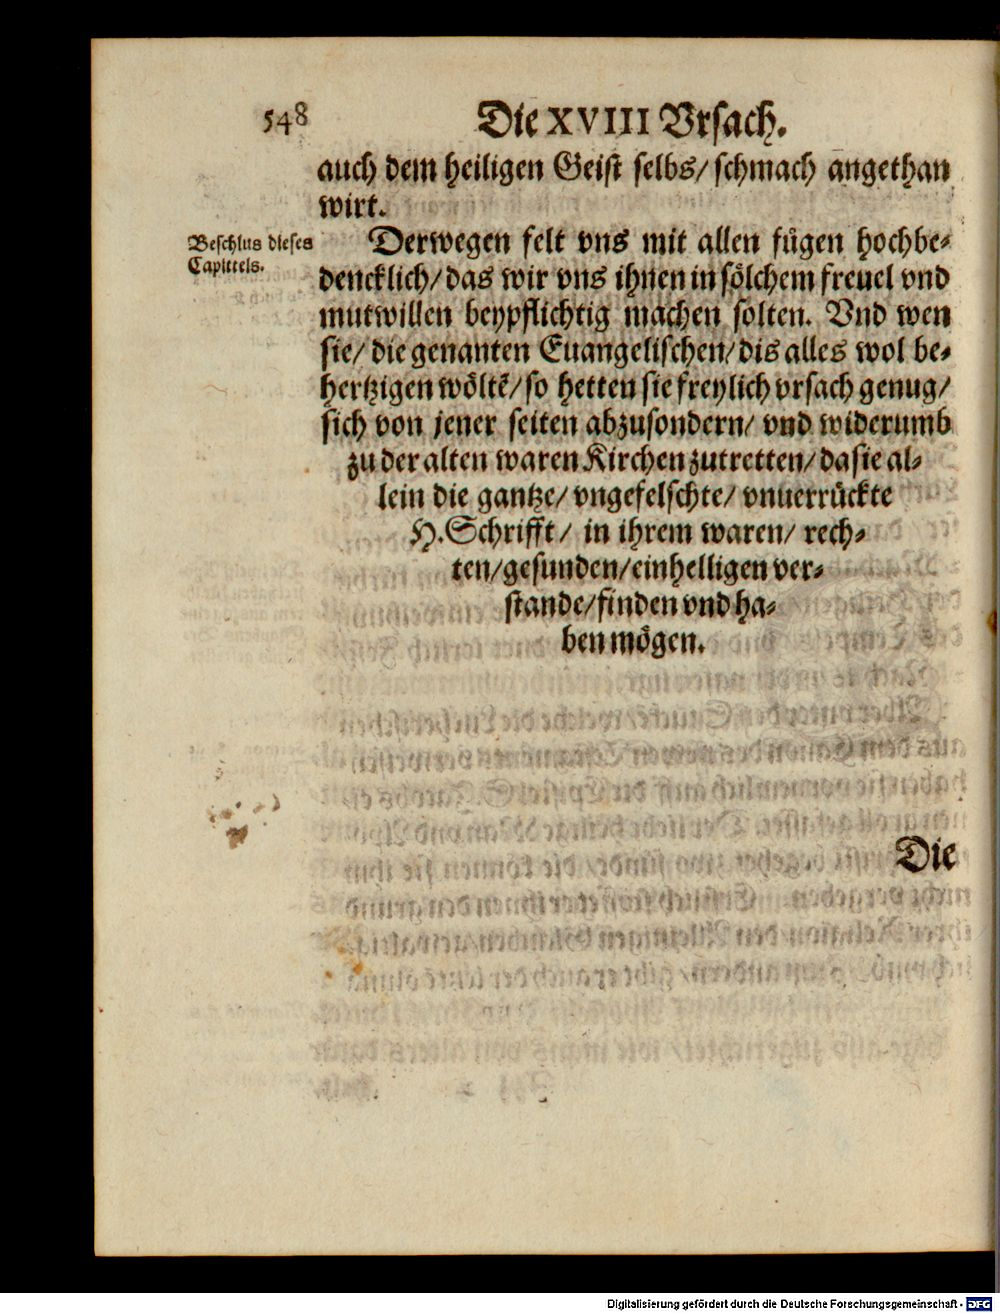 548
Die XVIII Vrsach.
auch dem heiligen Geist selbs/ schmach angethan
wirt.
Beschlus dieses
Capittels.
Derwegen felt vns mit allen fuͤgen hochbe⸗
dencklich/ das wir vns ihnen in soͤlchem freuel vnd
mutwillen beypflichtig machen solten. Vnd wen
sie/ die genanten Euangelischen/ dis alles wol be⸗
hertzigen woͤltē/ so hetten sie freylich vrsach genug/
sich von jener seiten abzusondern/ vnd widerumb
zu der alten waren Kirchen zutretten/ da sie al⸗
lein die gantze/ vngefelschte/ vnuerruͤckte
H. Schrifft/ in ihrem waren/ rech⸗
ten/ gesunden/ einhelligen ver⸗
stande/ finden vnd ha⸗
ben moͤgen.
Die
Digitalisierung gefördert durch die Deutsche Forschungsgemeinschaft - DFG